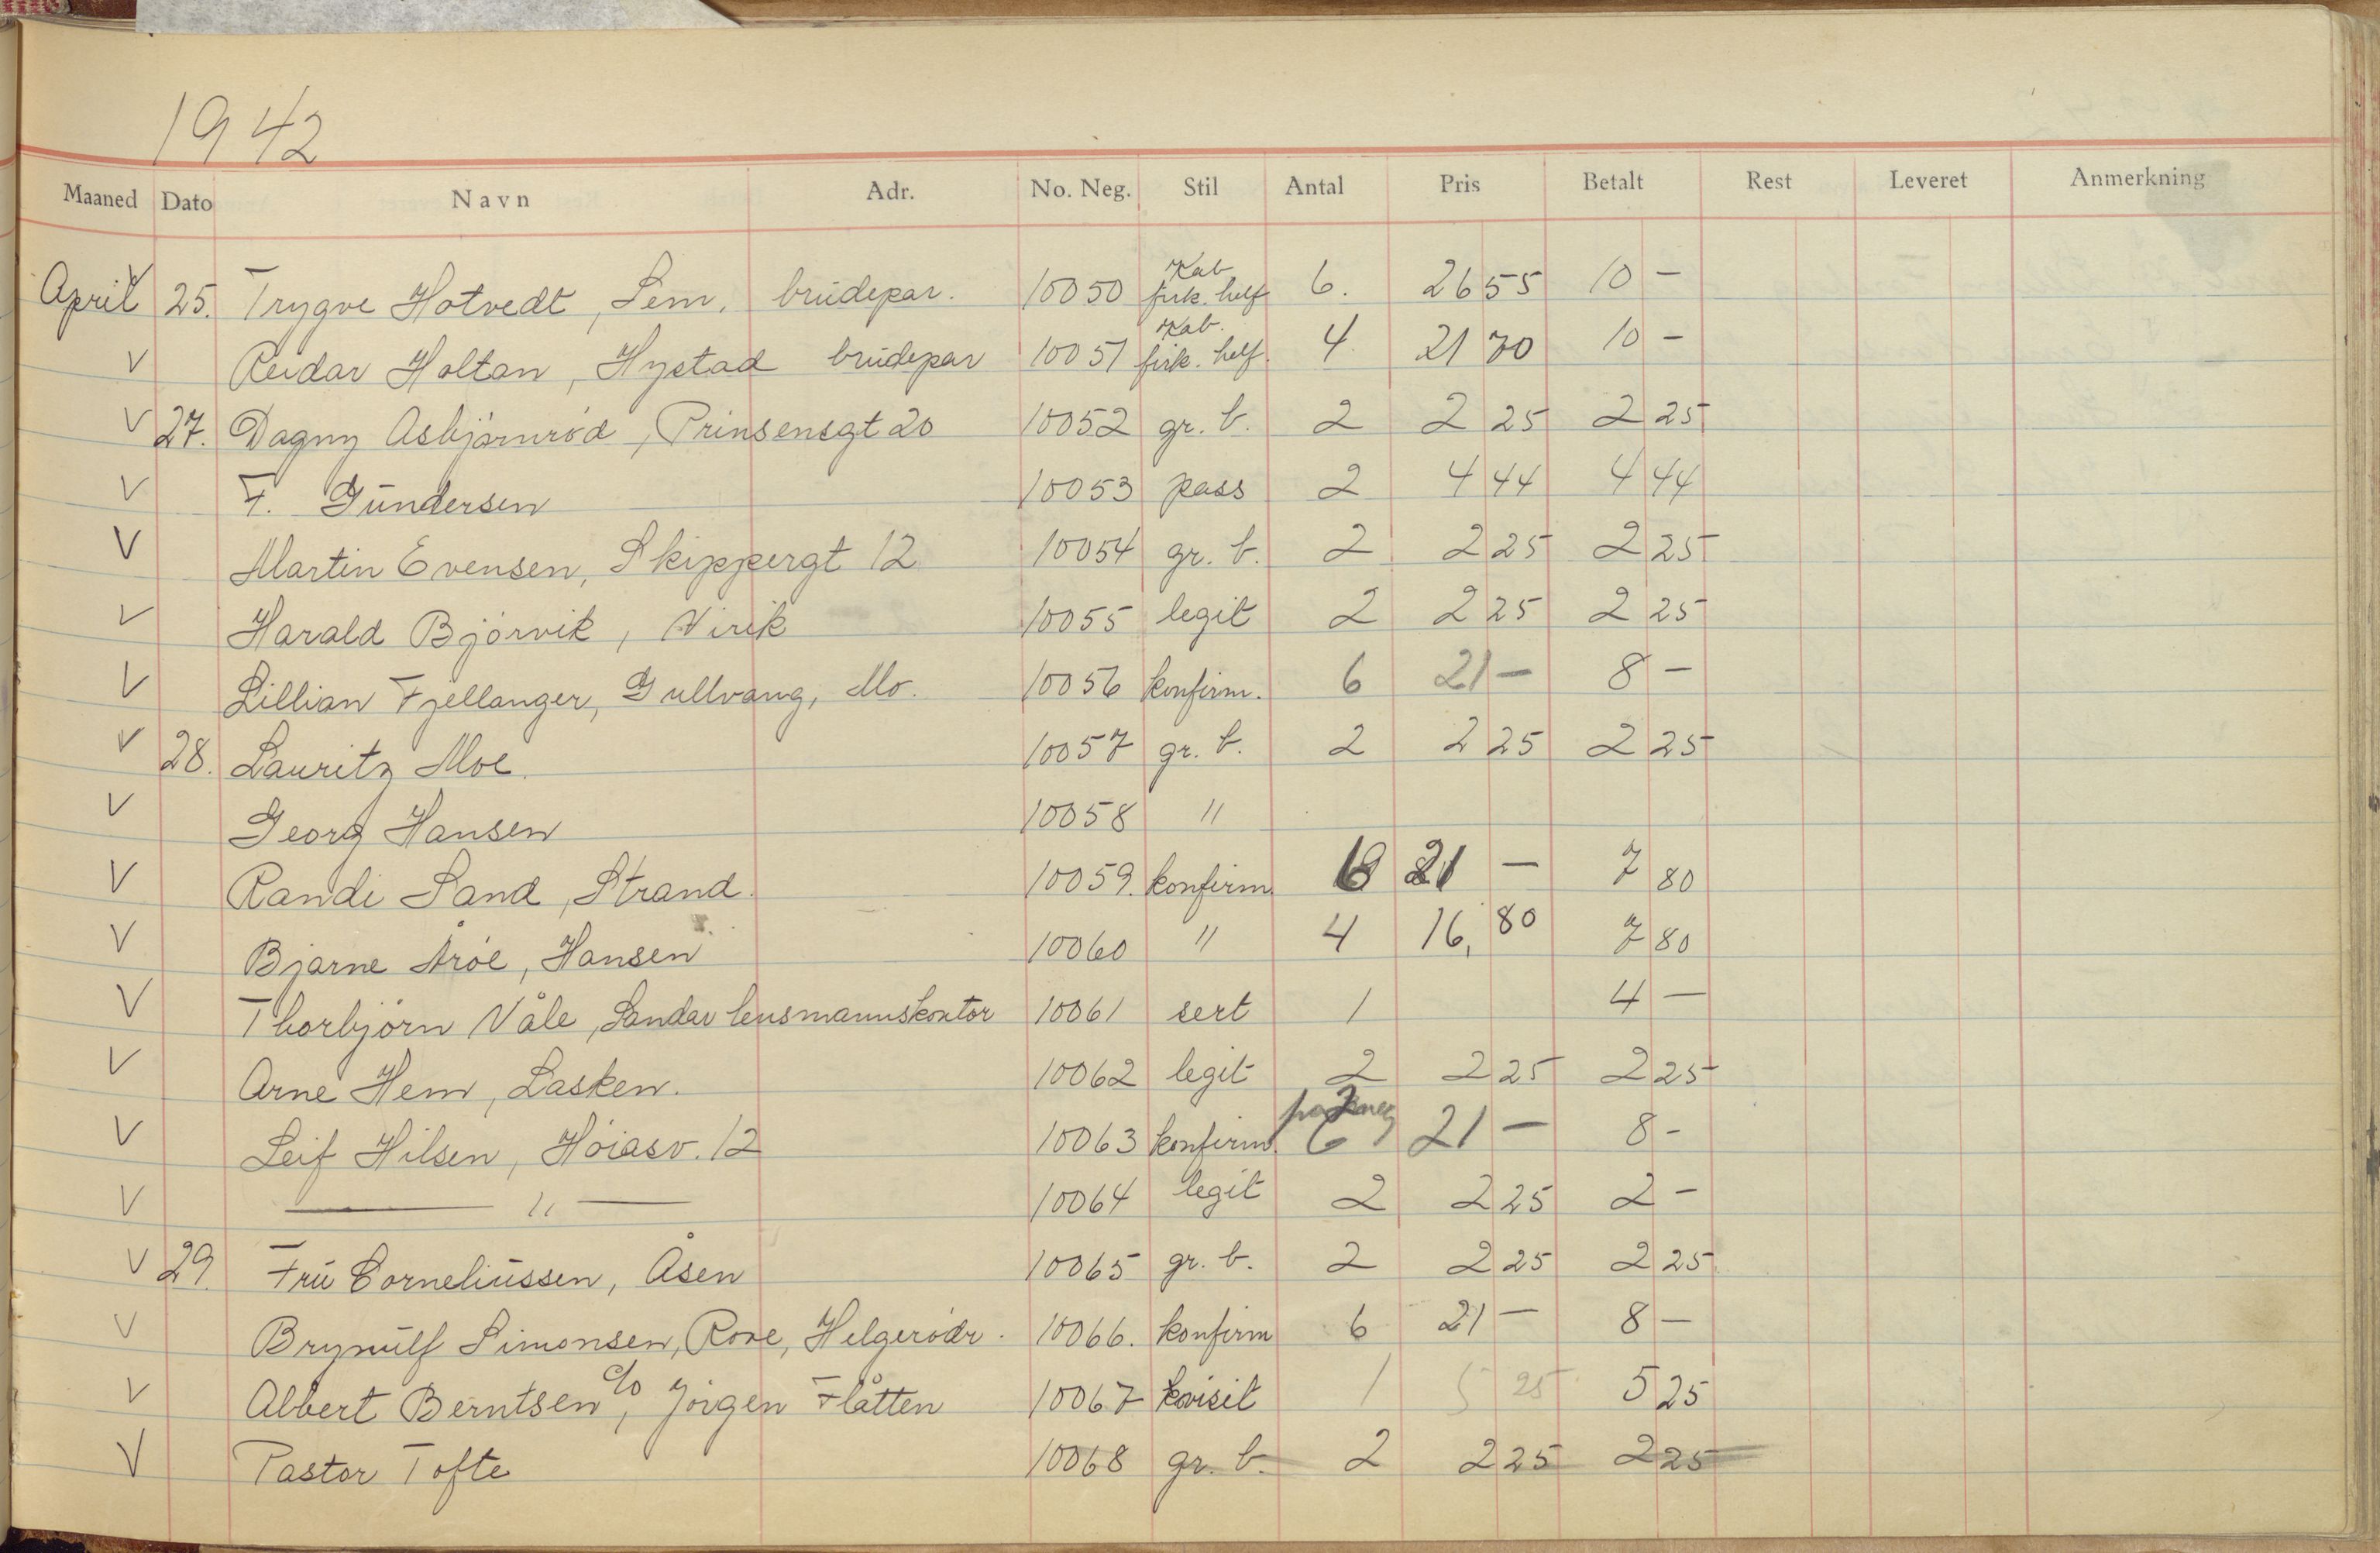 1942
Maaned Dato Navn Adr. No. Neg. Stil Antal Pris Betalt Rest Leveret Anmerkning
April V 25. Trygve Hotvedt, Sem, brudepar. 10050 Kab firk. helf 6. 26 55 10 -
V Reidar Holtan, Hystad brudepar 10051 Kab. firk. helf. 4 21 70 10 -
V 27. Dagny Asbjörnröd, Prinsensgt 20 10052 gr. b. 2 2 25 2 25
V F. Gundersen 10053 pass 2 4 44 4 44
V Martin Evensen, Skippergt 12 10054 gr. b. 2 2 25 2 25
V Harald Björvik, Virik 10055 legit 2 2 25 2 25
V Lillian Fjellanger, Gullvang, Mo. 10056 konfirm. 6 21 - 8 -
V 28. Lauritz Moe. 10057 gr. b. 2 2 25 2 25
V Georg Hansen 10058 "
V Randi Sand, Strand. 10059. konfirm. 6 21 - 7 80
V Bjarne Åröe, Hansen 10060 " 4 16, 80 7 80
V Thorbjörn Våle, Sandar lensmannskontor 10061 sert 1 4 -
V Arne Hem, Lasken. 10062 legit 2 2 25 2 25
V Leif Hilsen, Höiasv. 12 10063 konfirm. 6 21 - 8 -
V — " — 10064 legit 2 2 25 2 -
V 29. Fru Corneliussen, Åsen 10065 gr. b. 2 2 25 2 25
V Brynulf Simonsen, Rove, Helgerödr. 10066. konfirm 6 21 - 8 -
V Albert Berntsen, c/o Jörgen Flåtten 10067 kvisit 1 5 25 5 25
V Pastor Tofte 10068 gr. b. 2 2 25 2 25